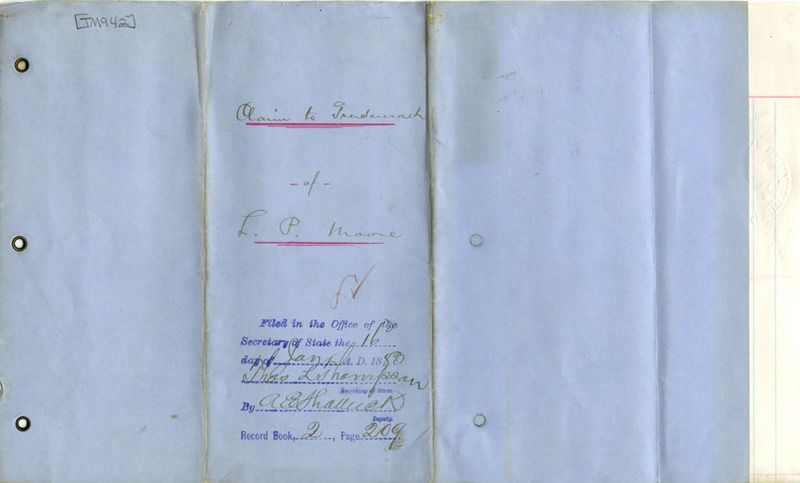 [TM942]
Claim to Trademark
- of -
L. P. Moore
Filed in the Office of the
Secretary of State the 16
day of Jan A. D. 1883
Thos L Thompson
Secretary of State.
By A E Shattuck
Deputy.
Record Book, 2, Page 209